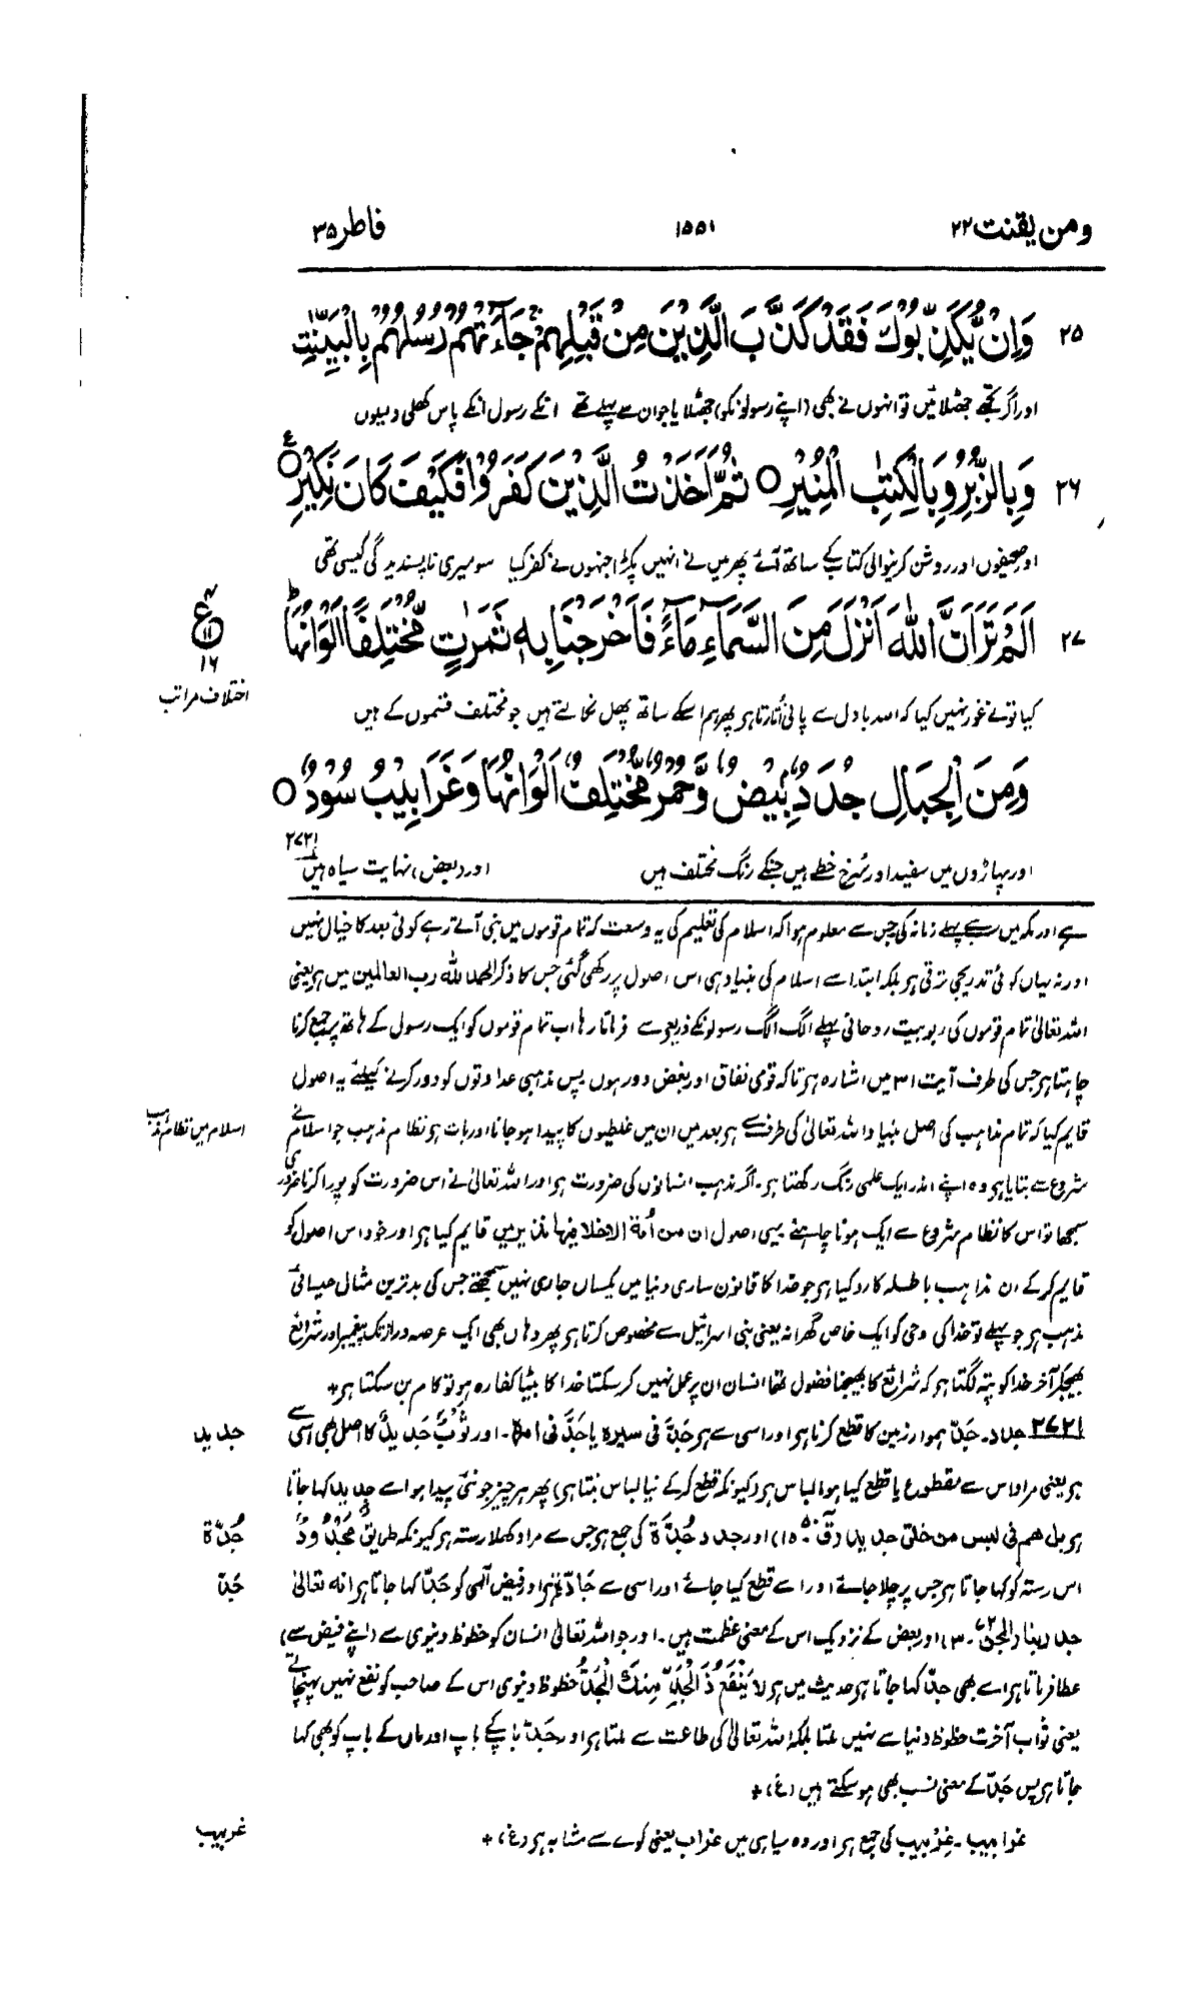 ومن یقنت ۲۲
۱۵۵۱
فاطر ۳۵
۲۵ وَاِنْ يُّكَذِّبُوْكَ فَقَدْ كَذَّبَ الَّذِيْنَ مِنْ قَبْلِهِمْ ۚ جَآءَتْهُمْ رُسُلُهُمْ بِالْبَيِّنٰتِ
اور اگر تجھے جھٹلائیں تو انہوں نے بھی (اپنے رسولونکو) جھٹلایا جو ان سے پہلے تھے انکے رسول انکے پاس کھلی دلیلوں
۲۶ وَبِالزُّبُرِ وَبِالْكِتٰبِ الْمُنِيْرِ ○ ثُمَّ اَخَذْتُ الَّذِيْنَ كَفَرُوْا فَكَيْفَ كَانَ نَكِيْرِ ○ ع
اور صحیفوں اور روشن کرنیوالی کتاب کے ساتھ آئے پھر میں نے انہیں پکڑا جنہوں نے کفر کیا سو میری ناپسندیدگی کیسی تھی
۲۷ اَلَمْ تَرَ اَنَّ اللّٰهَ اَنْزَلَ مِنَ السَّمَآءِ مَآءً فَاَخْرَجْنَا بِهٖ ثَمَرٰتٍ مُّخْتَلِفًا اَلْوَانُهَا ؕ
ع
۱۶
اختلاف مراتب
کیا تو نے غور نہیں کیا کہ اللہ بادل سے پانی اُتارتا ہو پھر ہم اسکے ساتھ پھل نکالتے ہیں جو مختلف قسموں کے ہیں
وَمِنَ الْجِبَالِ جُدَدٌۢ بِيْضٌ وَّحُمْرٌ مُّخْتَلِفٌ اَلْوَانُهَا وَغَرَابِيْبُ سُوْدٌ ○
اور پہاڑوں میں سفید اور سُرخ خطے ہیں جنکے رنگ مختلف ہیں اور (بعض) نہایت سیاہ ہیں ۲۷۲۱
ہے اور مکہ میں سب سے پہلے زمانہ کی جس سے معلوم ہوا کہ اسلام کی تعلیم کی یہ وسعت کہ تمام قوموں میں نبی آتے رہے کوئی بعد کا خیال نہیں
اور نہ یہاں کوئی تدریجی ترقی ہو بلکہ ابتدا سے اسلام کی بنیاد ہی اس اصول پر رکھی گئی جس کا ذکر الحمد للہ رب العالمین میں ہو یعنی
اللہ تعالیٰ تمام قوموں کی ربوبیت روحانی پہلے الگ الگ رسولونکے ذریعہ سے فرماتا رہا اب تمام قوموں کو ایک رسول کے ہاتھ پر جمع کرنا
چاہتا ہو جس کی طرف آیت ۳۱ میں اشارہ ہو تاکہ قومی نفاق اور بغض دور ہوں پس مذہبی عداوتوں کو دور کرنے کیلئے یہ اصول
قایم کیا کہ تمام مذاہب کی اصل بنیاد اللہ تعالیٰ کی طرف سے ہو بعد میں ان میں غلطیوں کا پیدا ہو جانا اور بات ہو نظام مذہب جو اسلام نے
اسلام میں نظام مذہب
شروع سے بتایا ہو وہ اپنے اندر ایک علمی رنگ رکھتا ہو۔ اگر مذہب انسانوں کی ضرورت ہو اور اللہ تعالیٰ نے اس ضرورت کو پورا کرنا ضروری
سمجھا تو اس کا نظام شروع سے ایک ہونا چاہئے یہی اصول ان من اُمة الا خلا فیها نذیر میں قایم کیا ہو اور خود اس اصول کو
قایم کر کے ان مذاہب باطلہ کا رد کیا ہو جو خدا کا قانون ساری دنیا میں یکساں جاری نہیں سمجھتے جس کی بدترین مثال عیسائی
مذہب ہو جو پہلے تو خدا کی وحی کو ایک خاص گھرانہ یعنی بنی اسرائیل سے مخصوص کرتا ہو پھر وہاں بھی ایک عرصہ دراز تک پیغمبر اور شرائع
بھیجکر آخر خدا کو پتہ لگتا ہو کہ شرائع کا بھیجنا فضول تھا انسان ان پر عمل نہیں کر سکتا خدا کا بیٹا کفارہ ہو تو کام بن سکتا ہو+
۲۷۲۱ جدد۔ جَدّ ہموار زمین کا قطع کرنا ہو اور اسی سے ہو جَدَّ فی سیرہ یا جَدَّ فی امرہ۔ اور ثَوْبٌ جَدِیدٌ کا اصل بھی اسی سے
جدید
ہو یعنی مراد اس سے مقطوع یا قطع کیا ہوا لباس ہو (کیونکہ قطع کر کے نیا لباس بنتا ہو) پھر ہر چیز جو نئی پیدا ہو اسے جدید کہا جاتا
ہو بل هم فی لبس من خلق جدید (قٓ ۵۰۔۱۵) اور جدد جُدَّة کی جمع ہو جس سے مراد کھلا رستہ ہو کیونکہ طریق مَجْدُوْدٌ
جُدّة
اس رستہ کو کہا جاتا ہو جس پر چلا جائے اور اسے قطع کیا جائے اور اسی سے جَادّة ہو اور فیض الٰہی کو جَدّ کہا جاتا ہو انه تعالیٰ
جَدّ
جد ربنا (الجن ۷۲۔۳) اور بعض کے نزدیک اس کے معنی عظمت ہیں۔ اور جو اللہ تعالیٰ انسان کو حظوظ دنیوی سے (اپنے فیض سے)
عطا فرماتا ہو اسے بھی جدّ کہا جاتا ہو حدیث میں ہو لَا یَنْفَعُ ذَا الْجَدِّ مِنْكَ الْجَدُّ حظوظ دنیوی اس کے صاحب کو نفع نہیں پہنچاتے
یعنی ثواب آخرت حظوظ دنیا سے نہیں ملتا بلکہ اللہ تعالیٰ کی طاعت سے ملتا ہو اور جَدّ باپ کے باپ اور ماں کے باپ کو بھی کہا
جاتا ہو پس جَدّ کے معنی نسب بھی ہو سکتے ہیں (غ)+
غرابیب۔ غِرْبیب کی جمع ہو اور وہ سیاہی میں غراب یعنی کوے سے مشابہ ہو (غ)+
غربیب